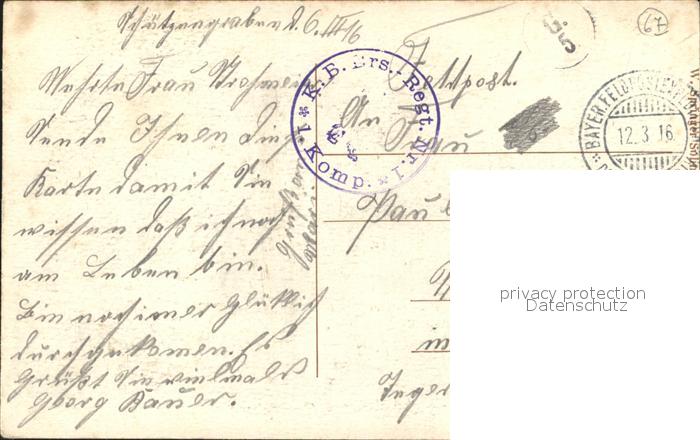 Schützengraben d. 6. III 16
Werte Frau
Sende Ihnen die
Karte damit Sie
wissen daß ich noch
am Leben bin.
Bin noch imer Glüklich
durchgekomen. Es
Grüßt Sie vielmals
Georg Bauer.
Feldpost.
An
Frau
Paul
in
* K. B. Ers. Regt. Nr. 1. * 1. Komp.
BAYER. FELDPOST
12.3.16
67
privacy protection
Datenschutz